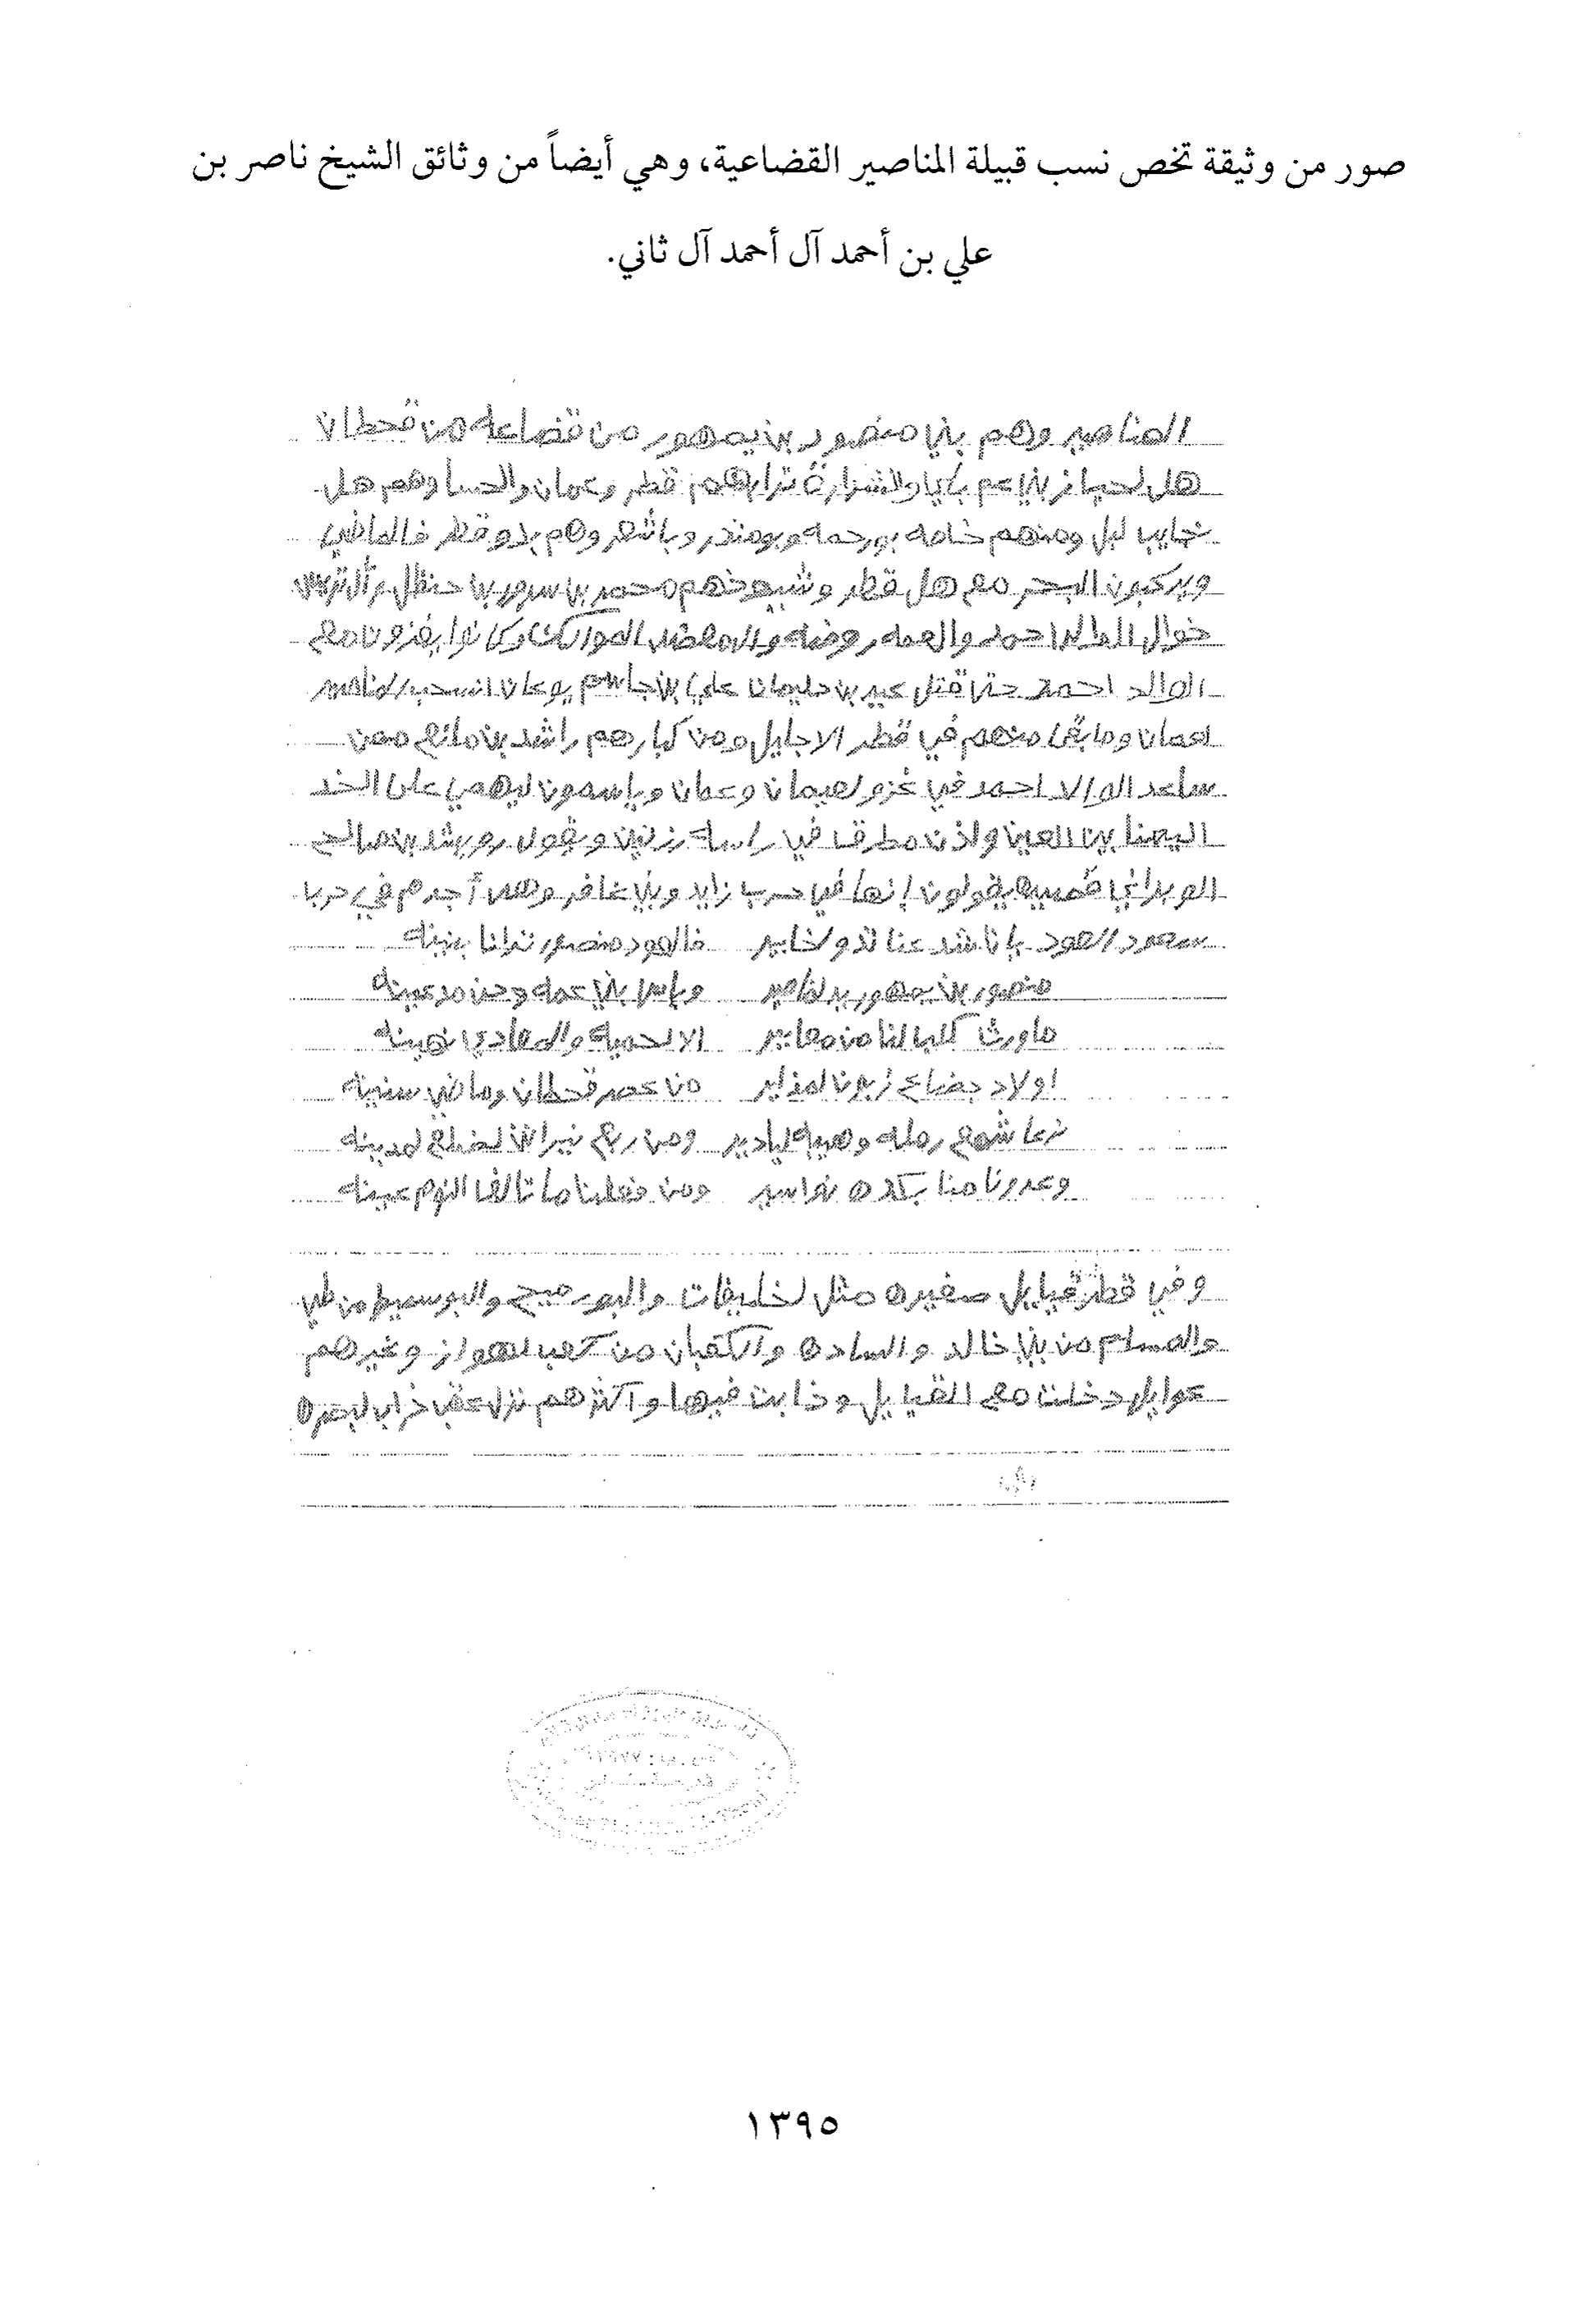 صور من وثيقة تخص نسب قبيلة المناصير القضاعية، وهي أيضاً من وثائق الشيخ ناصر بن
علي بن أحمد آل أحمد آل ثاني.
المناصير وهم بني منصور بن يمهور من قضاعه من قحطان
هل لحيا زبني عم ياي والشرارة ترابهم قطر وعمان والحسا وهم هل
نجايب لبل ومنهم خامه بورحمه وبومنذر وباشعر وهم بدو قطر فالماضي
ويركبون البحر مع هل قطر وشيوخهم محمد بن سرور بن حنظل
خوال الوالد احمد والعمه روضه وكانوا يغزون مع
الوالد احمد حتى قتل عبيد بن حليمان علي بن جاسم يوعان انسحب لمناصير
لعمان وما بقى منهم في قطر الا جليل ومن كبارهم راشد بن مانع ممن
ساعد الوالد احمد في غزو لعيمان وعمان وياسمون ليهمي على الخد
اليمنا بين العين ولاذن مطرقا في راسه رزتين ويقول رويشد بن صالح
الوبراني يقولون إنها في حرب زايد وبني غافر وهي أجدم في حربا
سعود العود يا ناشد عنا تدو لخابير فالعود منصور ترانا بنينه
منصور بن يمهور يد لمناصير وياس بني عمه وحن مدعينه
ماورث كلبا لنا من معايير الا لحميه والمعادي نهينه
اولاد جضاع زبون لمذاير من عصر قحطان وماضي سنينه
نرعا شمع رمله وهيبه ليادير ومن ربع نيراننا لمدينه
وعدونا منا بكده نواسير ومن فعلنا ما تالفا النوم عينه
وفي قطر قبايل صغيره مثل لخليفات والبورميح والبوسميط من طي
والمسلم من بني خالد والساده والكعبان من كعب لهواز وغيرهم
عوايل دخلت مع القبايل وذابت فيها واكثرهم نزل عقب خراب لبصره
١٣٩٥